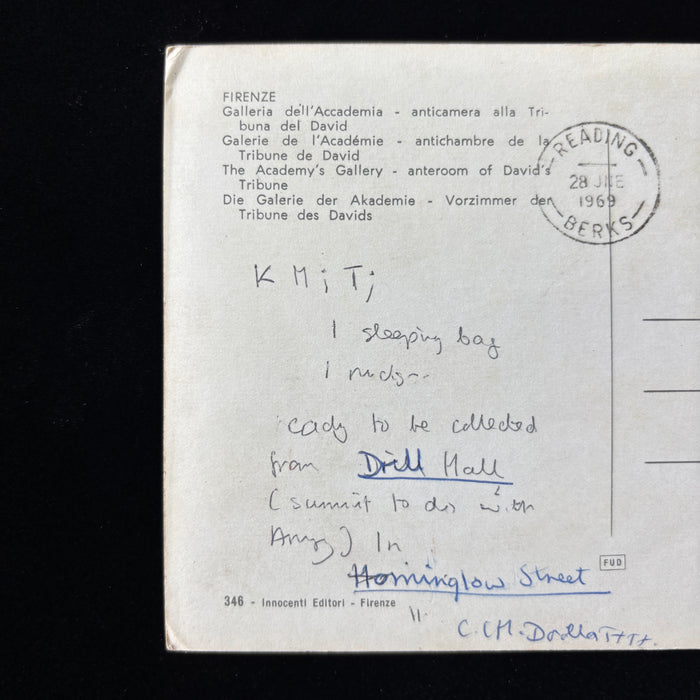 FIRENZE
Galleria dell'Accademia - anticamera alla Tri-
buna del David
Galerie de l'Académie - antichambre de la
Tribune de David
The Academy's Gallery - anteroom of David's
Tribune
Die Galerie der Akademie - Vorzimmer der
Tribune des Davids
READING
28 JNE
1969
BERKS
K M; T;
1 sleeping bag
1
ready to be collected
from Drill Hall
(summit to do with
Army) In
Horninglow Street
FUD
346 - Innocenti Editori - Firenze